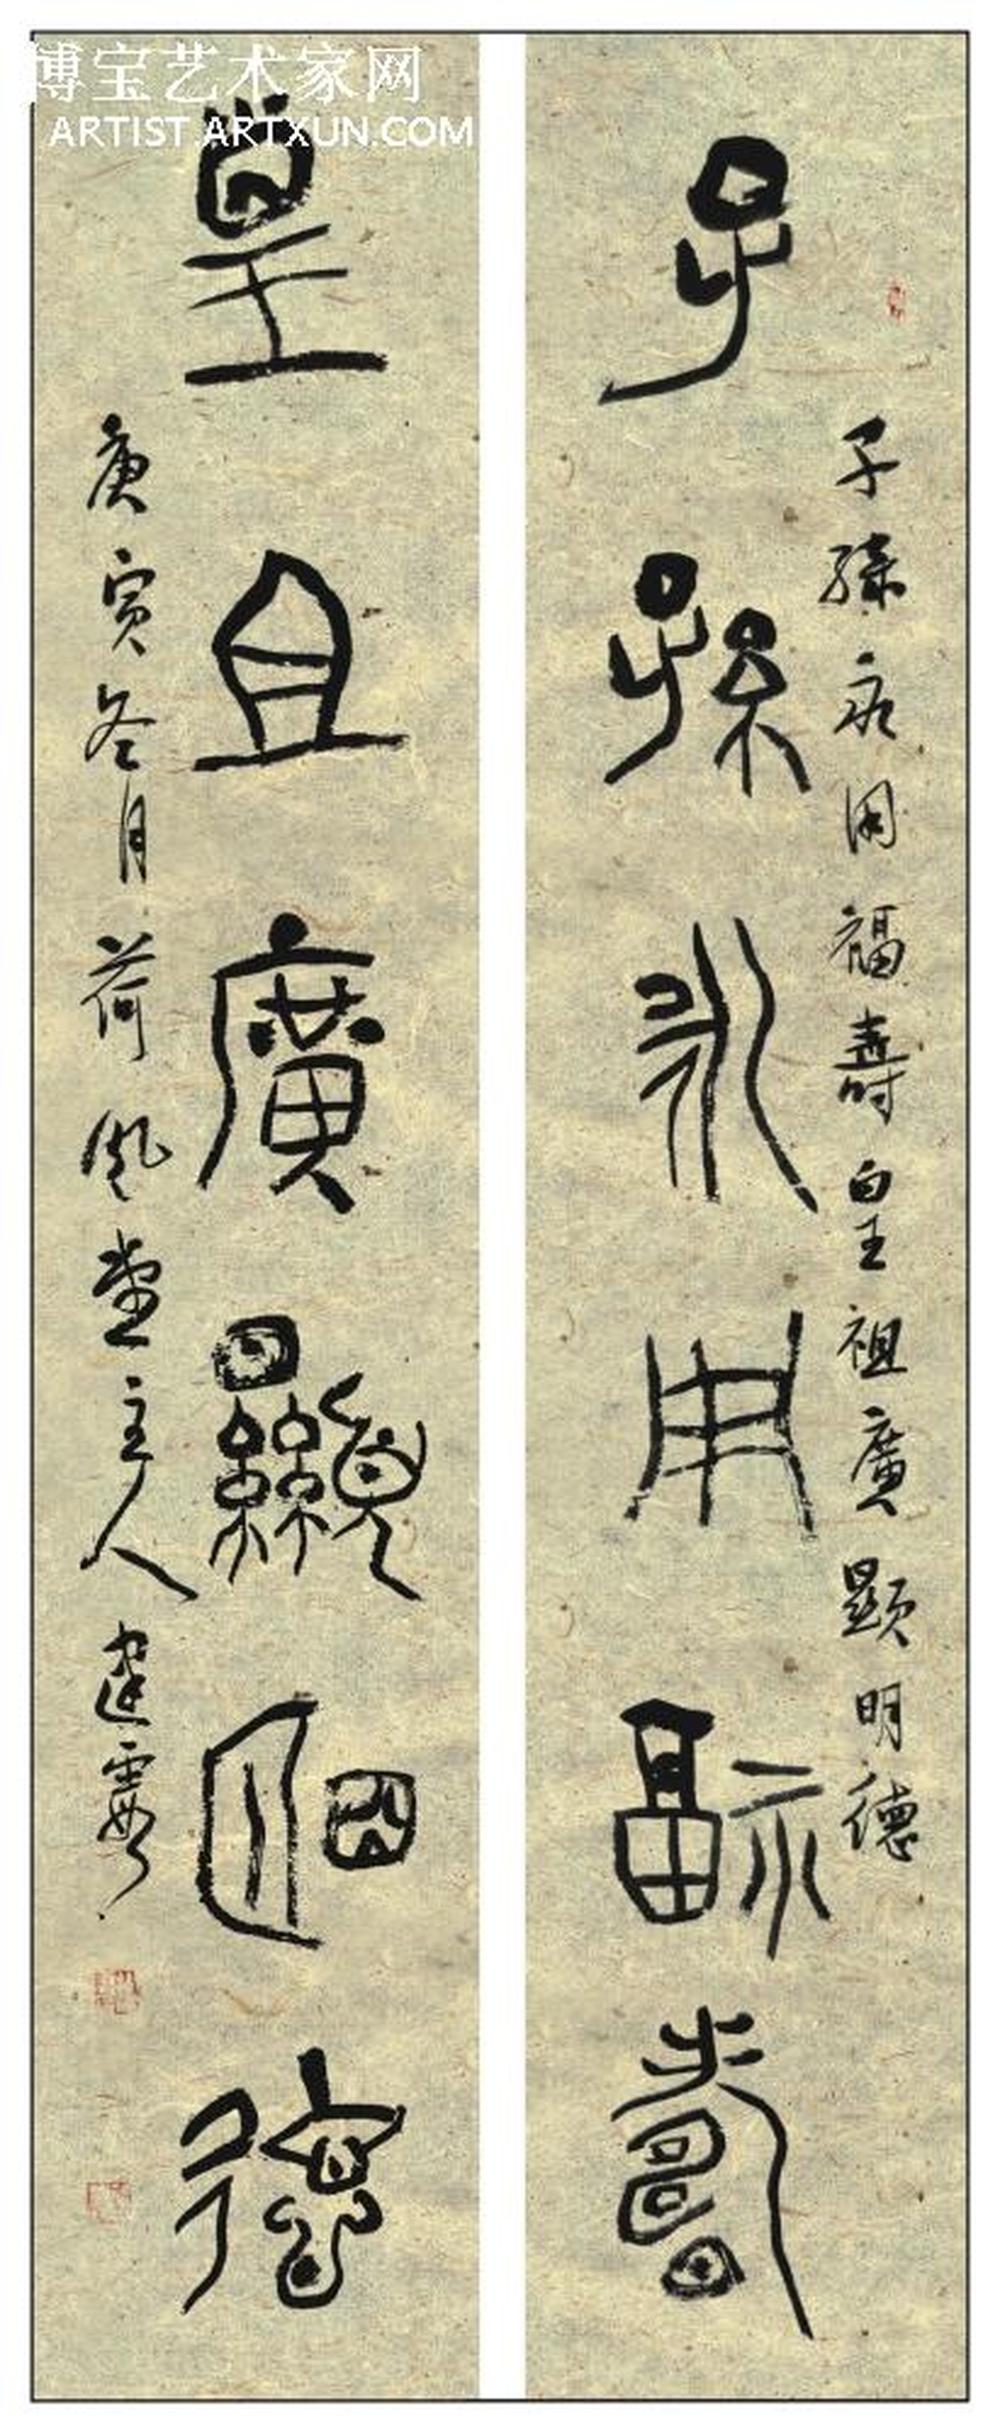 博宝艺术家网
ARTIST.ARTXUN.COM
子孫永用福壽
子孫永用福壽皇祖廣顯明德
皇且廣顯明德
庚寅冬月荷風堂主人建霞